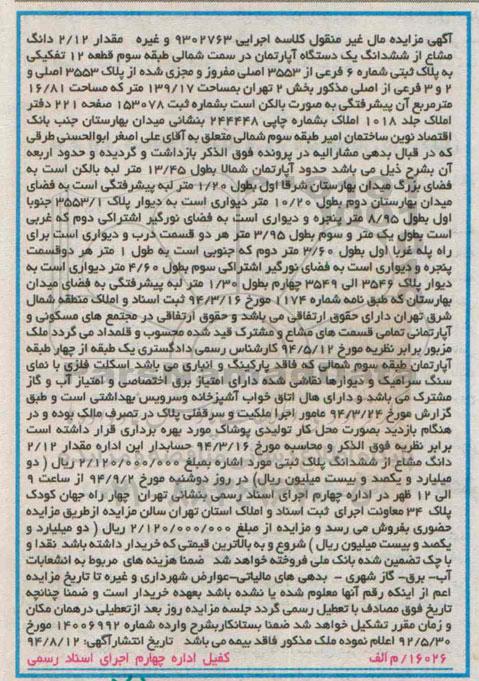 آگهی مزایده مال غیر منقول کلاسه اجرایی ۹۳۰۲۷۶۳ و غیره   مقدار ۲/۱۲ دانگ
مشاع از ششدانگ یک دستگاه آپارتمان در سمت شمالی طبقه سوم قطعه ۱۲ تفکیکی
به پلاک ثبتی شماره ۶ فرعی از ۳۵۵۳ اصلی مفروز و مجزی شده از پلاک ۳۵۵۳ اصلی و
۲ و ۳ فرعی از اصلی مذکور بخش ۲ تهران بمساحت ۱۳۹/۱۷ متر که مساحت ۱۶/۸۱
مترمربع آن پیشرفتگی به صورت بالکن است بشماره ثبت ۱۵۳۰۷۸ صفحه ۲۲۱ دفتر
املاک جلد ۱۰۱۸ املاک بشماره چاپی ۲۴۴۴۴۸ بنشانی میدان بهارستان جنب بانک
اقتصاد نوین ساختمان امیر طبقه سوم شمالی متعلق به آقای علی اصغر ابوالحسنی طرقی
که در قبال بدهی مشارالیه در پرونده فوق الذکر بازداشت و گردیده و حدود اربعه
آن بشرح ذیل می باشد حدود آپارتمان شمالا بطول ۱۳/۴۵ متر لبه بالکن است به
فضای بزرگ میدان بهارستان شرقا اول بطول ۱/۲۰ متر لبه پیشرفتگی است به فضای
میدان بهارستان دوم بطول ۱۰/۲۰ متر دیواری است به دیوار پلاک ۳۵۵۳/۱ جنوبا
اول بطول ۸/۹۵ متر پنجره و دیواری است به فضای نورگیر اشتراکی دوم که غربی
است بطول یک متر و سوم بطول ۳/۹۵ متر هر دو قسمت درب و دیواری است برای
راه پله غربا اول بطول ۳/۶۰ متر دوم که جنوبی است به طول ۱ متر هر دوقسمت
پنجره و دیواری است به فضای نورگیر اشتراکی سوم بطول ۴/۶۰ متر دیواری است به
دیوار پلاک ۳۵۴۶ الی ۳۵۴۹ چهارم بطول ۱/۳۰ متر لبه پیشرفتگی به فضای میدان
بهارستان که طبق نامه شماره ۱۱۷۴ مورخ ۹۴/۳/۱۶ ثبت اسناد و املاک منطقه شمال
شرق تهران دارای حقوق ارتفاقی می باشد و حقوق ارتفاقی در مجتمع های مسکونی و
آپارتمانی تمامی قسمت های مشاع و مشترک قید شده محسوب و قلمداد می گردد ملک
مزبور برابر نظریه مورخ ۹۴/۵/۱۲ کارشناس رسمی دادگستری یک طبقه از چهار طبقه
آپارتمان طبقه شمالی که فاقد پارکینگ و انباری می باشد اسکلت فلزی با نمای
سنگ سرامیک و دیوارها نقاشی شده دارای امتیاز برق اختصاصی و امتیاز آب و گاز
مشترک می باشد و دارای هال اتاق خواب آشپزخانه وسرویس بهداشتی است و طبق
گزارش مورخ ۹۴/۳/۲۴ مامور اجرا ملکیت و سرقفلی پلاک در تصرف مالک بوده و در
هنگام بازدید بصورت محل کار تولیدی پوشاک مورد بهره برداری قرار داشته است
برابر نظریه فوق الذکر و محاسبه مورخ ۹۴/۳/۱۶ حسابدار این اداره مقدار ۲/۱۲
دانگ مشاع از ششدانگ پلاک ثبتی مورد اشاره بمبلغ ۲/۱۲۰/۰۰۰/۰۰۰ ریال ( دو
میلیارد و یکصد و بیست میلیون ریال) در روز دوشنبه مورخ ۹۴/۹/۲ از ساعت ۹
الی ۱۲ ظهر در اداره چهارم اجرای اسناد رسمی بنشانی تهران  چهار راه جهان کودک
پلاک ۳۴ معاونت اجرای  ثبت اسناد و املاک استان تهران سالن مزایده ازطریق مزایده
حضوری بفروش می رسد و مزایده از مبلغ ۲/۱۲۰/۰۰۰/۰۰۰ ریال ( دو میلیارد و
یکصد و بیست میلیون ریال ) شروع و به بالاترین قیمتی که خریدار داشته باشد  نقدا و
با چک تضمین شده بانک ملی فروخته خواهد شد   ضمنا هزینه های  مربوط به انشعابات
آب- برق- گاز شهری -  بدهی های مالیاتی-عوارض شهرداری و غیره تا تاریخ مزایده
اعم از اینکه رقم آنها معلوم شده یا نشده باشد بعهده خریدار است و ضمنا چنانچه
تاریخ فوق مصادف با تعطیل رسمی گردد جلسه مزایده روز بعد ازتعطیلی درهمان مکان
و زمان مقرر تشکیل خواهد شد ضمنا بستانکاربشرح وارده شماره ۱۴۰۰۶۹۹۲ مورخ
۹۲/۵/۳۰ اعلام نموده ملک مذکور فاقد بیمه می باشد   تاریخ انتشارآگهی: ۹۴/۸/۱۲
۱۶۰۲۶/م الف   کفیل اداره چهارم اجرای اسناد رسمی